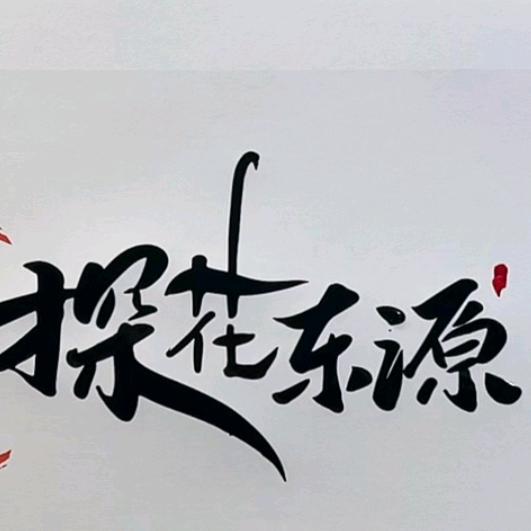 探花东源